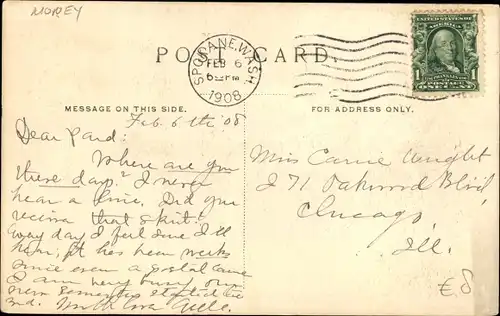 MOREY
POST CARD.
SPOKANE, WASH.
FEB 6
6 PM
1908
UNITED STATES OF AMERICA
1
1
POSTAGE
ONE CENT
MESSAGE ON THIS SIDE.
FOR ADDRESS ONLY.
Feb. 6th 08
Dear Pard:
Where are you
these days? I never
hear a line. Did you
receive that skirt?
Every day I feel sure I'll
hear, it has been weeks
since even a postal came
I am very busy now
new semester started the
3rd.
Miss Carrie Wright
271 Oakwood Blvd.
Chicago,
Ill.
€8